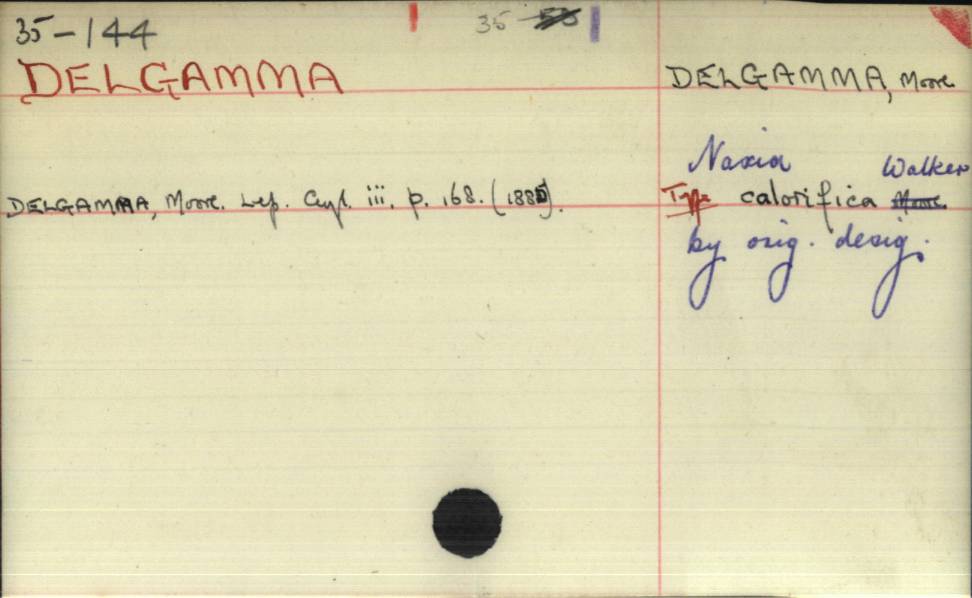 35-144
35
DELGAMMA
DELGAMMA, Moore
Naxia Walker
DELGAMMA, Moore. Lep. Ceyl. iii. p. 168. (1885).
Type calorifica Moore
by orig. desig.